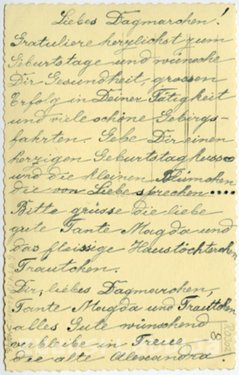 Liebes Dagmarchen!
Gratuliere herzlichst zum
Geburtstage und wünsche
Dir Gesundheit, grossen
Erfolg in Deiner Tätigkeit
und viele schöne Gebirgs-
fahrten. Gebe Dir einen
herzigen Geburtstagskuss
und die kleinen Blümchen
die von Liebe sprechen....
Bitte grüsse die liebe
gute Tante Magda und
das fleissige Haustöchterchen
Trautchen.
Dir, liebes Dagmarchen,
Tante Magda und Trautchen
alles Gute wünschend
verbleibe in Treue
die alte Alexandra!